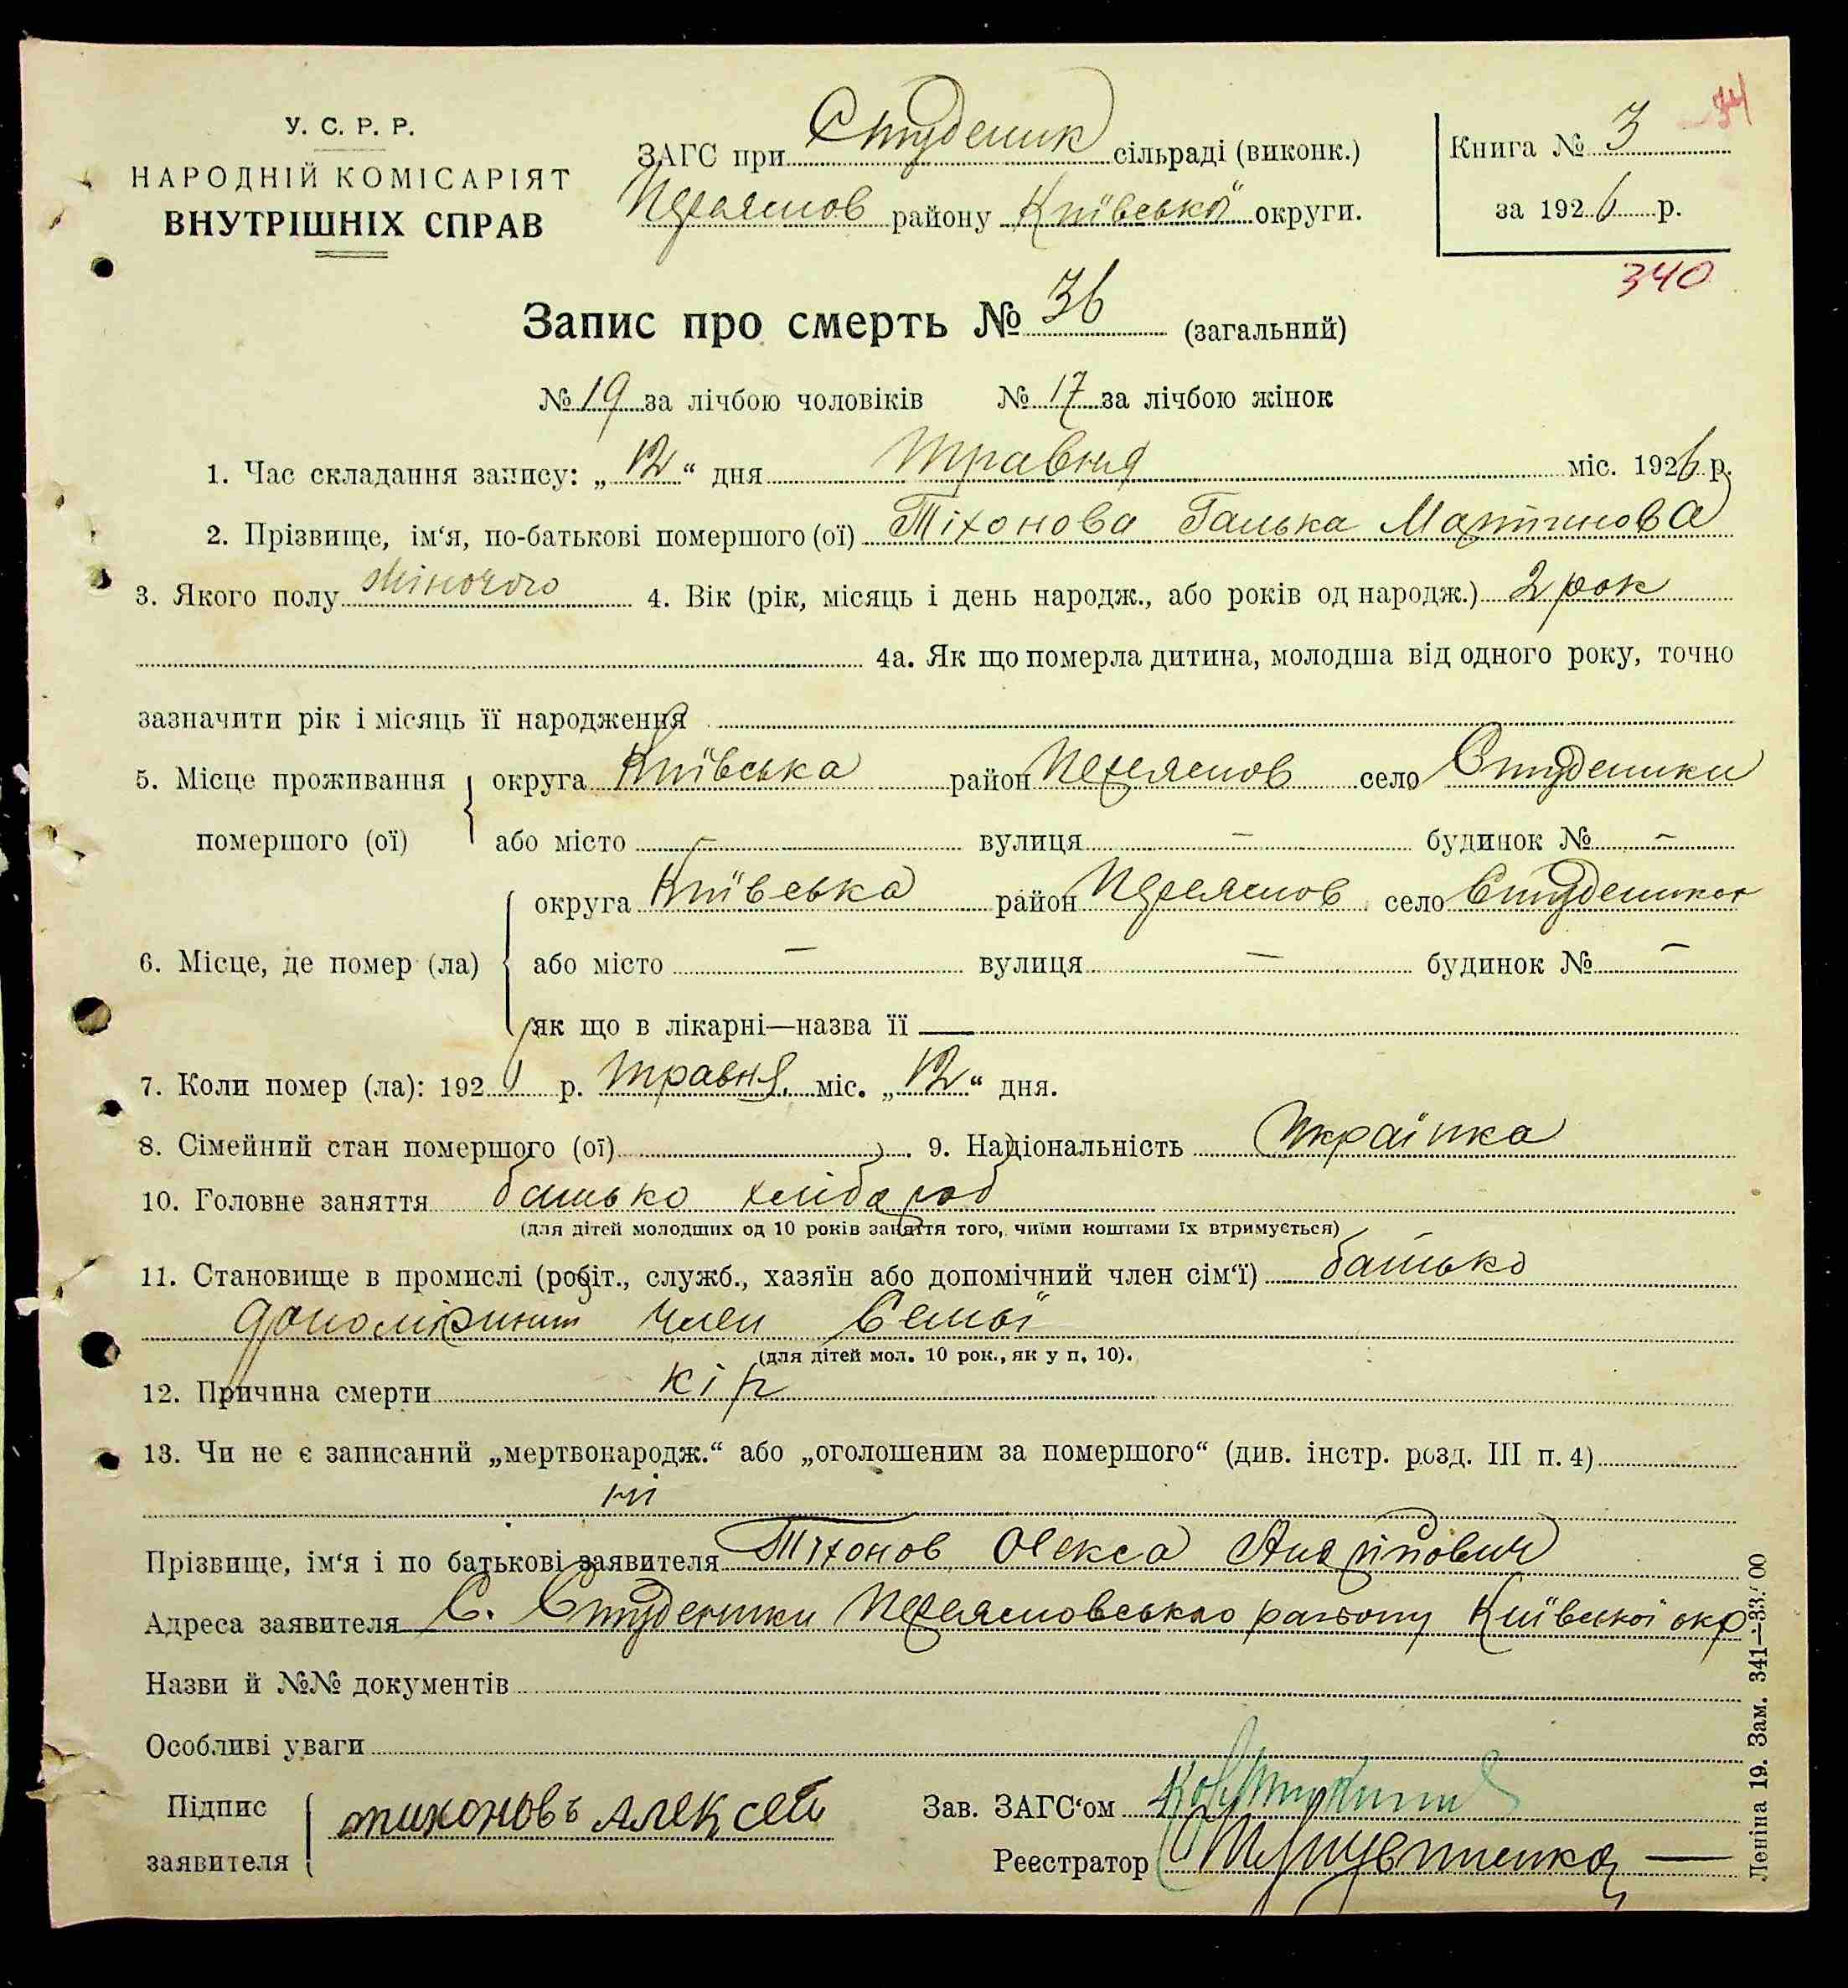 34
У. С. Р. Р.
НАРОДНІЙ КОМІСАРІЯТ
ВНУТРІШНІХ СПРАВ
ЗАГС при Студеник сільраді (виконк.)
Переяслов району Київської округи.
Книга № 3
за 1926 р.
340
Запис про смерть № 36 (загальний)
№ 19 за лічбою чоловіків № 17 за лічбою жінок
1. Час складання запису: „12“ дня Травня міс. 1926 р.
2. Прізвище, ім‘я, по-батькові помершого (ої) Тіхонова Галька Мартинова
3. Якого полу жіночого 4. Вік (рік, місяць і день народж., або років од народж.) 2 рок
4а. Як що померла дитина, молодша від одного року, точно
зазначити рік і місяць її народження
5. Місце проживання округа Київська район Переяслов село Студеники
помершого (ої) або місто — вулиця — будинок № —
округа Київська район Переяслов село Студениках
6. Місце, де помер (ла) або місто — вулиця — будинок № —
як що в лікарні—назва її —
7. Коли помер (ла): 1926 р. Травня міс. „12“ дня.
8. Сімейний стан помершого (ої) 9. Національність Українка
10. Головне заняття батько хлібароб
(для дітей молодших од 10 років заняття того, чиїми коштами їх втримується)
11. Становище в промислі (робіт., служб., хазяїн або допомічний член сім‘ї) батько
допомічний член семьї
(для дітей мол. 10 рок., як у п. 10).
12. Причина смерти кір
13. Чи не є записаний „мертвонародж.“ або „оголошеним за помершого“ (див. інстр. розд. III п. 4)
ні
Прізвище, ім‘я і по батькові заявителя Тіхонов Олекса Андріпович
Адреса заявителя С. Студеники Переясловсько району Київської окр
Назви й №№ документів
Особливі уваги
Підпис заявителя тихоновъ алексей
Зав. ЗАГС‘ом
Реєстратор
Леніна 19. Зам. 341—33.00